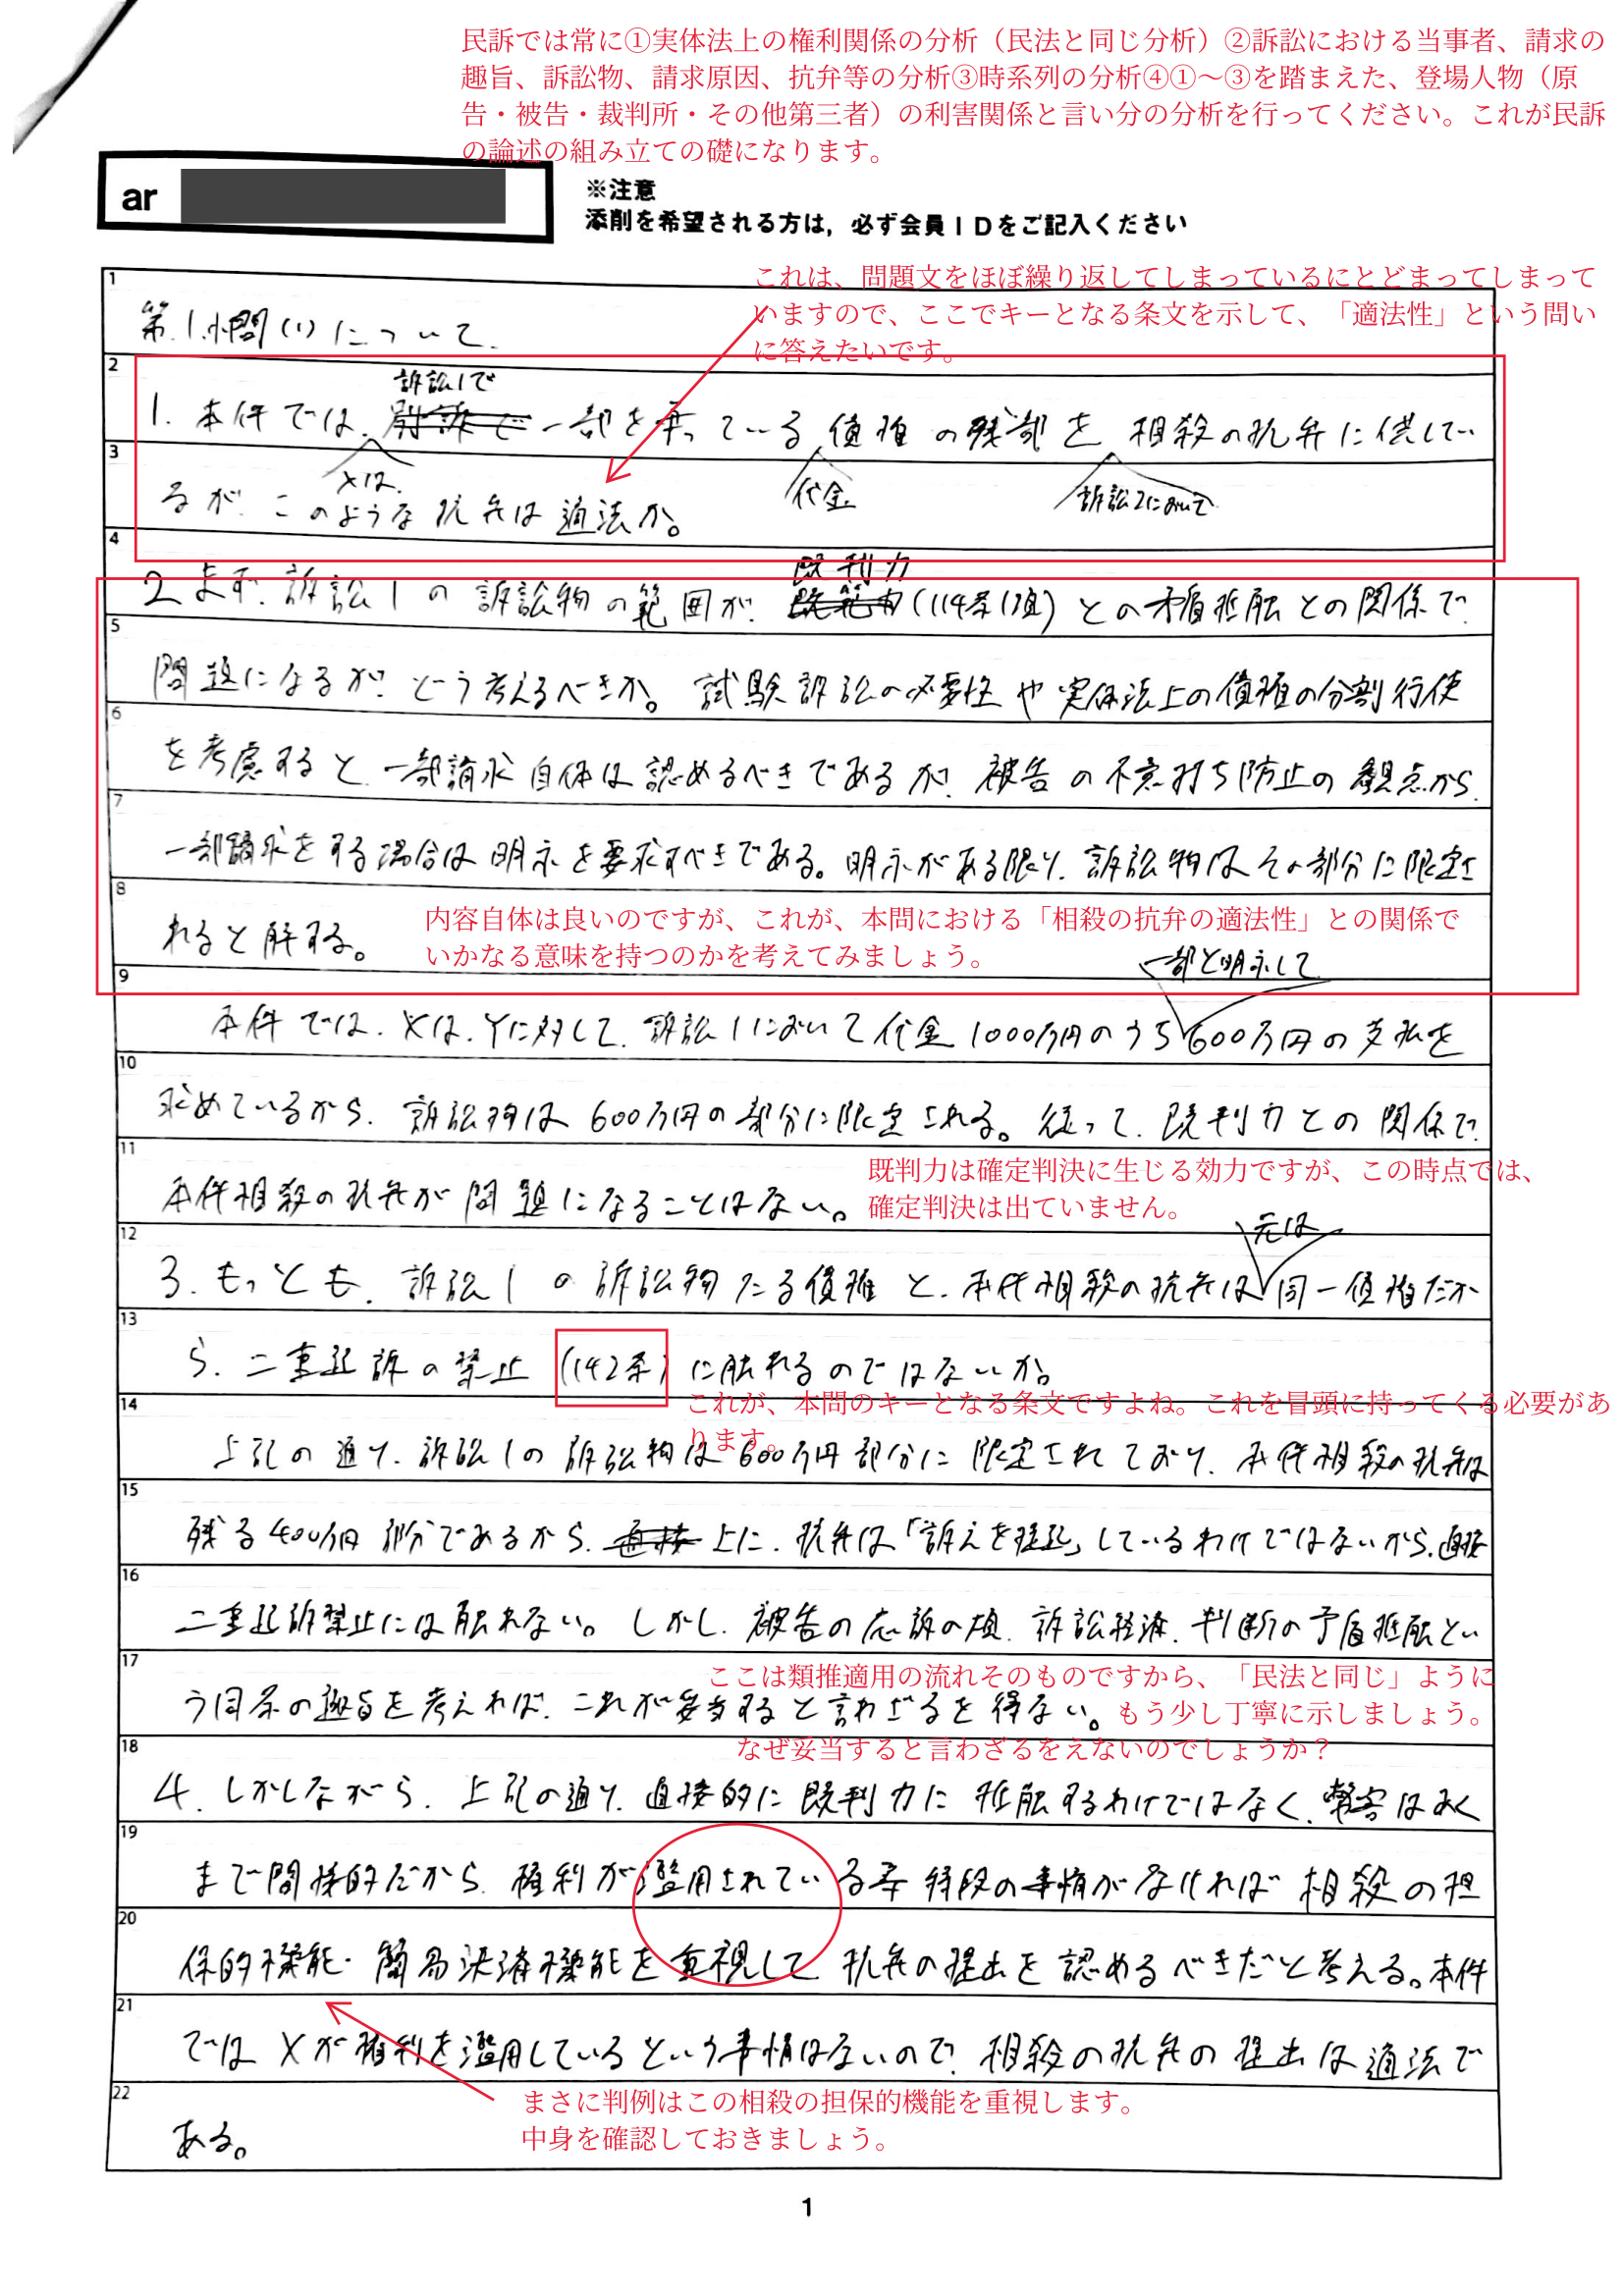 民訴では常に①実体法上の権利関係の分析（民法と同じ分析）②訴訟における当事者、請求の
趣旨、訴訟物、請求原因、抗弁等の分析③時系列の分析④①～③を踏まえた、登場人物（原
告・被告・裁判所・その他第三者）の利害関係と言い分の分析を行ってください。これが民訴
の論述の組み立ての礎になります。
ar
※注意
添削を希望される方は，必ず会員ＩＤをご記入ください
これは、問題文をほぼ繰り返してしまっているにとどまってしまって
いますので、ここでキーとなる条文を示して、「適法性」という問い
に答えたいです。
1
第1.小問(1)について.
2
訴訟1で
1. 本件では、別訴で一部を弄っている債権の残部を相殺の抗弁に供してい
3
Xは、
代金
訴訟2において
るが、このような抗弁は適法か。
4
既判力
2 まず、訴訟1の訴訟物の範囲が、(114条1項)との矛盾抵触との関係で
5
問題になるが、どう考えるべきか。試験訴訟の必要性や実体法上の債権の分割行使
6
を考慮すると、一部請求自体は認めるべきであるが、被告の不意打ち防止の観点から、
7
一部請求をする場合は明示を要求すべきである。明示がある限り、訴訟物はその部分に限定さ
8
れると解する。
内容自体は良いのですが、これが、本問における「相殺の抗弁の適法性」との関係で
いかなる意味を持つのかを考えてみましょう。
一部と明示して
9
本件では、Xは、Yに対して、訴訟1において代金1000万円のうち600万円の支払を
10
求めているから、訴訟物は600万円の部分に限定される。従って、既判力との関係で、
11
本件相殺の抗弁が問題になることはない。
既判力は確定判決に生じる効力ですが、この時点では、
確定判決は出ていません。
12
元は
3. もっとも、訴訟1の訴訟物たる債権と、本件相殺の抗弁は同一債権だか
13
ら、二重起訴の禁止(142条)に触れるのではないか。
これが、本問のキーとなる条文ですよね。これを冒頭に持ってくる必要があ
ります。
14
上記の通り、訴訟1の訴訟物は600万円部分に限定されており、本件相殺の抗弁は
15
残る400万円部分であるから、直接上に、抗弁は「訴えを提起」しているわけではないから、直接
16
二重起訴禁止には触れない。しかし、被告の応訴の煩、訴訟経済、判断の矛盾抵触とい
17
う同条の趣旨を考えれば、これが妥当すると言わざるを得ない。
ここは類推適用の流れそのものですから、「民法と同じ」ように
もう少し丁寧に示しましょう。
なぜ妥当すると言わざるをえないのでしょうか？
18
4. しかしながら、上記の通り、直接的に既判力に抵触するわけではなく、弊害はあく
19
まで間接的だから、権利が濫用されている等特段の事情がなければ相殺の担
20
保的機能・簡易決済機能を重視して抗弁の提出を認めるべきだと考える。本件
21
ではXが権利を濫用しているという事情はないので、相殺の抗弁の提出は適法で
22
ある。
まさに判例はこの相殺の担保的機能を重視します。
中身を確認しておきましょう。
1